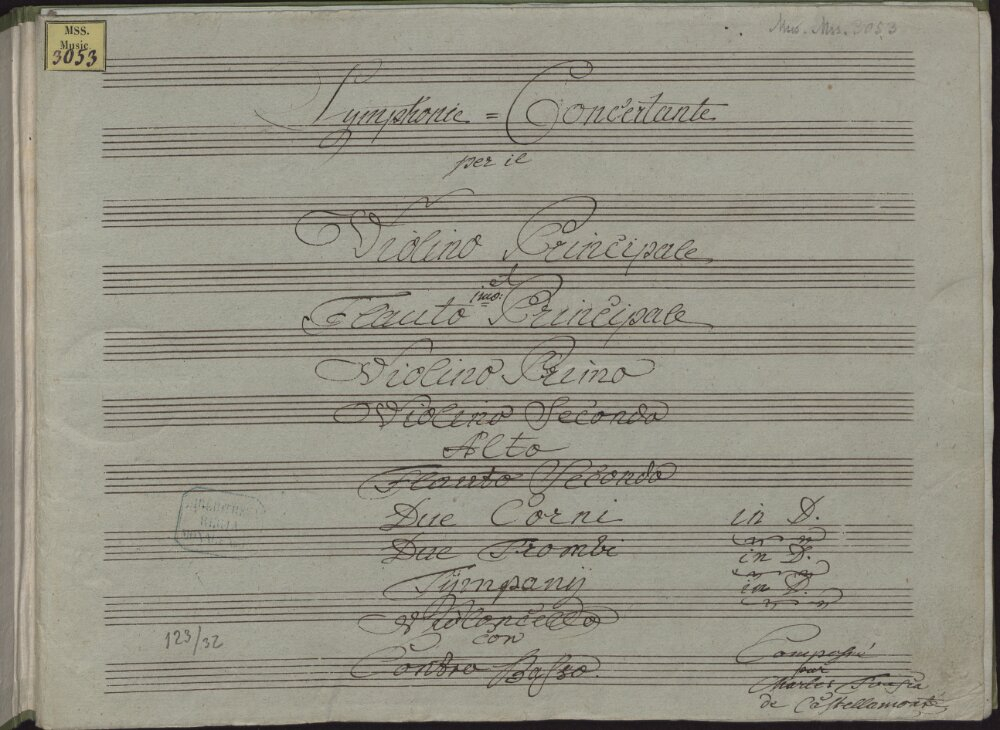 MSS.
Music
3053
Mus. Mss. 3053
Symphonie = Concertante
per il
Violino Principale
et
Flauto imo: Principale
Violino Primo
Violino Secondo
Alto
Flauto Secondo
Due Corni in D.
Due Trombi in D.
Tÿmpany in D.
Violoncello
con
Contro Basso.
123/32
Composée
par
Charles
de Castellamonte